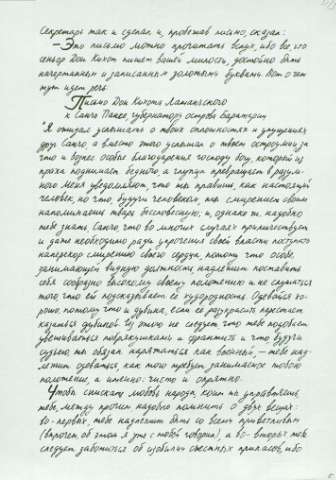 Секретарь так и сделал и, пробежав письмо, сказал:
— Это письмо можно прочитать вслух, ибо все, что
сеньор Дон Кихот пишет вашей милости, достойно быть
начертанным и записанным золотыми буквами. Вот о чем
тут идет речь:
Письмо Дон Кихота Ламанчского
к Санчо Пансе, губернатору острова Баратарии
"Я ожидал услышать о твоих оплошностях и упущениях,
друг Санчо, а вместо этого услышал о твоем остроумии, за
что и вознес особые благодарения господу богу, который из
праха поднимает бедного, а глупца превращает в разум-
ного. Меня уведомляют, что ты правишь, как настоящий
человек, но что, будучи человеком, ты смирением своим
напоминаешь тварь бессловесную; и, однако ж, надобно
тебе знать, Санчо, что во многих случаях приличествует
и даже необходимо ради упрочения своей власти поступать
наперекор смирению своего сердца, потому что особе,
занимающей видную должность, надлежит поставить
себя сообразно высокому своему положению и не слушаться
того, что ей подсказывает ее худородность. Одевайся хо-
рошо, потому что и дубина, если ее разукрасить, перестает
казаться дубиной. Из этого не следует, что тебе подобает
увешиваться побрякушками и франтить и что, будучи
судьею, ты обязан наряжаться как военный, — тебе над-
лежит одеваться, как того требует занимаемое тобою
положение, а именно: чисто и опрятно.
Чтобы снискать любовь народа, коим ты управляешь,
тебе, между прочим, надобно помнить о двух вещах:
во-первых, тебе надлежит быть со всеми приветливым
(впрочем, об этом я уже с тобой говорил), а во-вторых, тебе
следует заботиться об изобилии съестных припасов, ибо